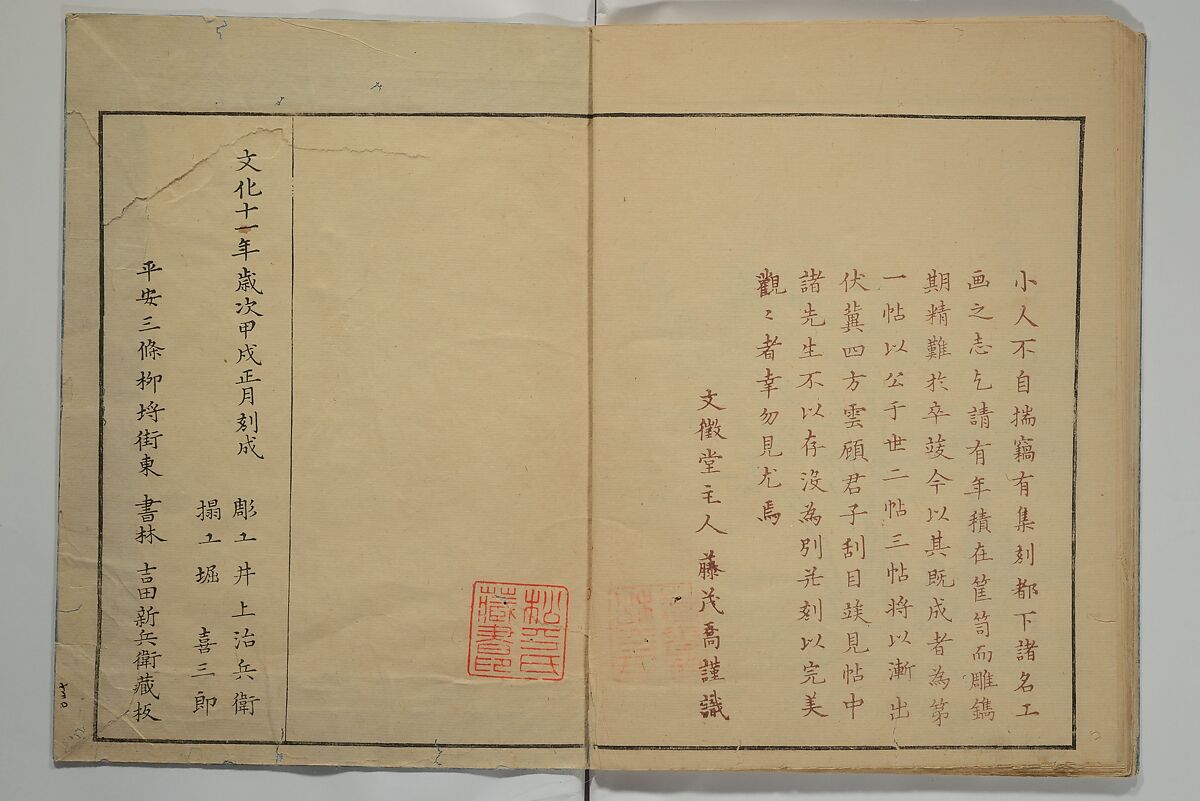 小人不自揣竊有集刻都下諸名工
画之志乞請有年積在筐笥而雕鐫
期精難於卒竣今以其既成者為第
一帖以公于世二帖三帖将以漸出
伏冀四方雲顧君子刮目竢見帖中
諸先生不以存没為別並刻以完美
觀〻者幸勿見尤焉
文徴堂主人 藤茂喬謹識
松平氏
藏書印
文化十一年歳次甲戌正月刻成
彫工 井上治兵衛
搨工 堀 喜三郎
平安三條柳埒街東 書林 吉田新兵衛藏板